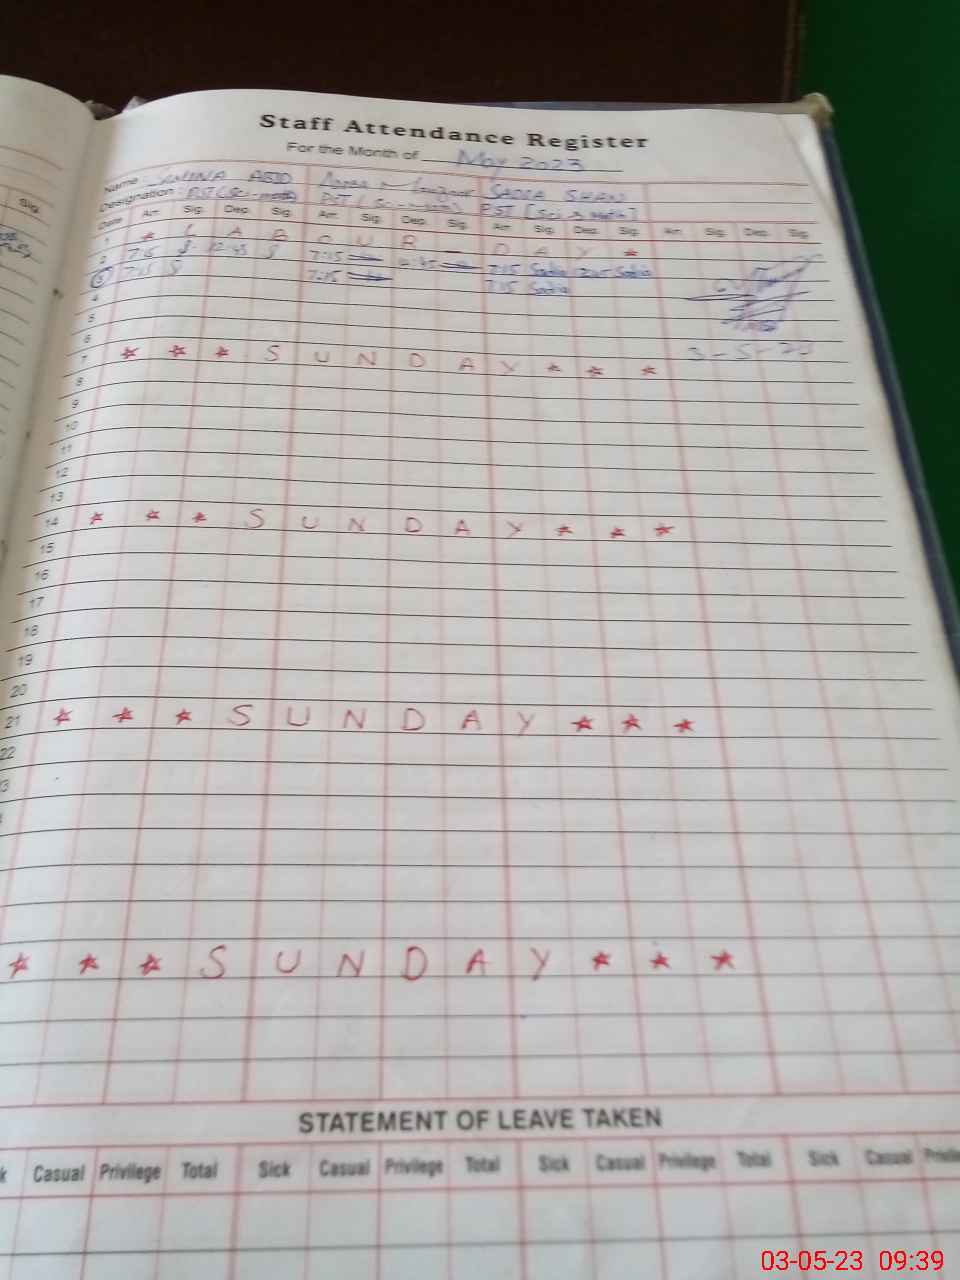 Staff Attendance Register
For the Month of May 2023
Name: SAMINA ABID SADIA SHAH
Designation: PST (Sci-math) PST (Sci-math) PST [Sci & Math]
Date Arr. Sig. Dep. Sig. Arr. Sig. Dep. Sig. Arr. Sig. Dep. Sig. Arr. Sig. Dep. Sig.
Sig.
1 * L A B O U R D A Y *
2 7:15 12:45 7:15 12:45 7:15 Sadia 12:45 Sadia
3 7:15 7:15 7:15 Sadia
4
5
6
3-5-23
7 * * * S U N D A Y * * *
8
9
10
11
12
13
14 * * * S U N D A Y * * *
15
16
17
18
19
20
21 * * * S U N D A Y * * *
22
3
* * * S U N D A Y * * *
STATEMENT OF LEAVE TAKEN
k Casual Privilege Total Sick Casual Privilege Total Sick Casual Privilege Total Sick Casual Privile
03-05-23 09:39